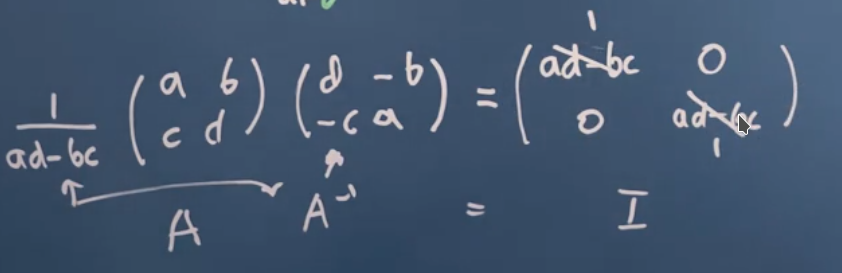 1
1/(ad-bc) (a b; c d) (d -b; -c a) = (ad-bc 0; 0 ad-bc)
1
A A⁻¹ = I